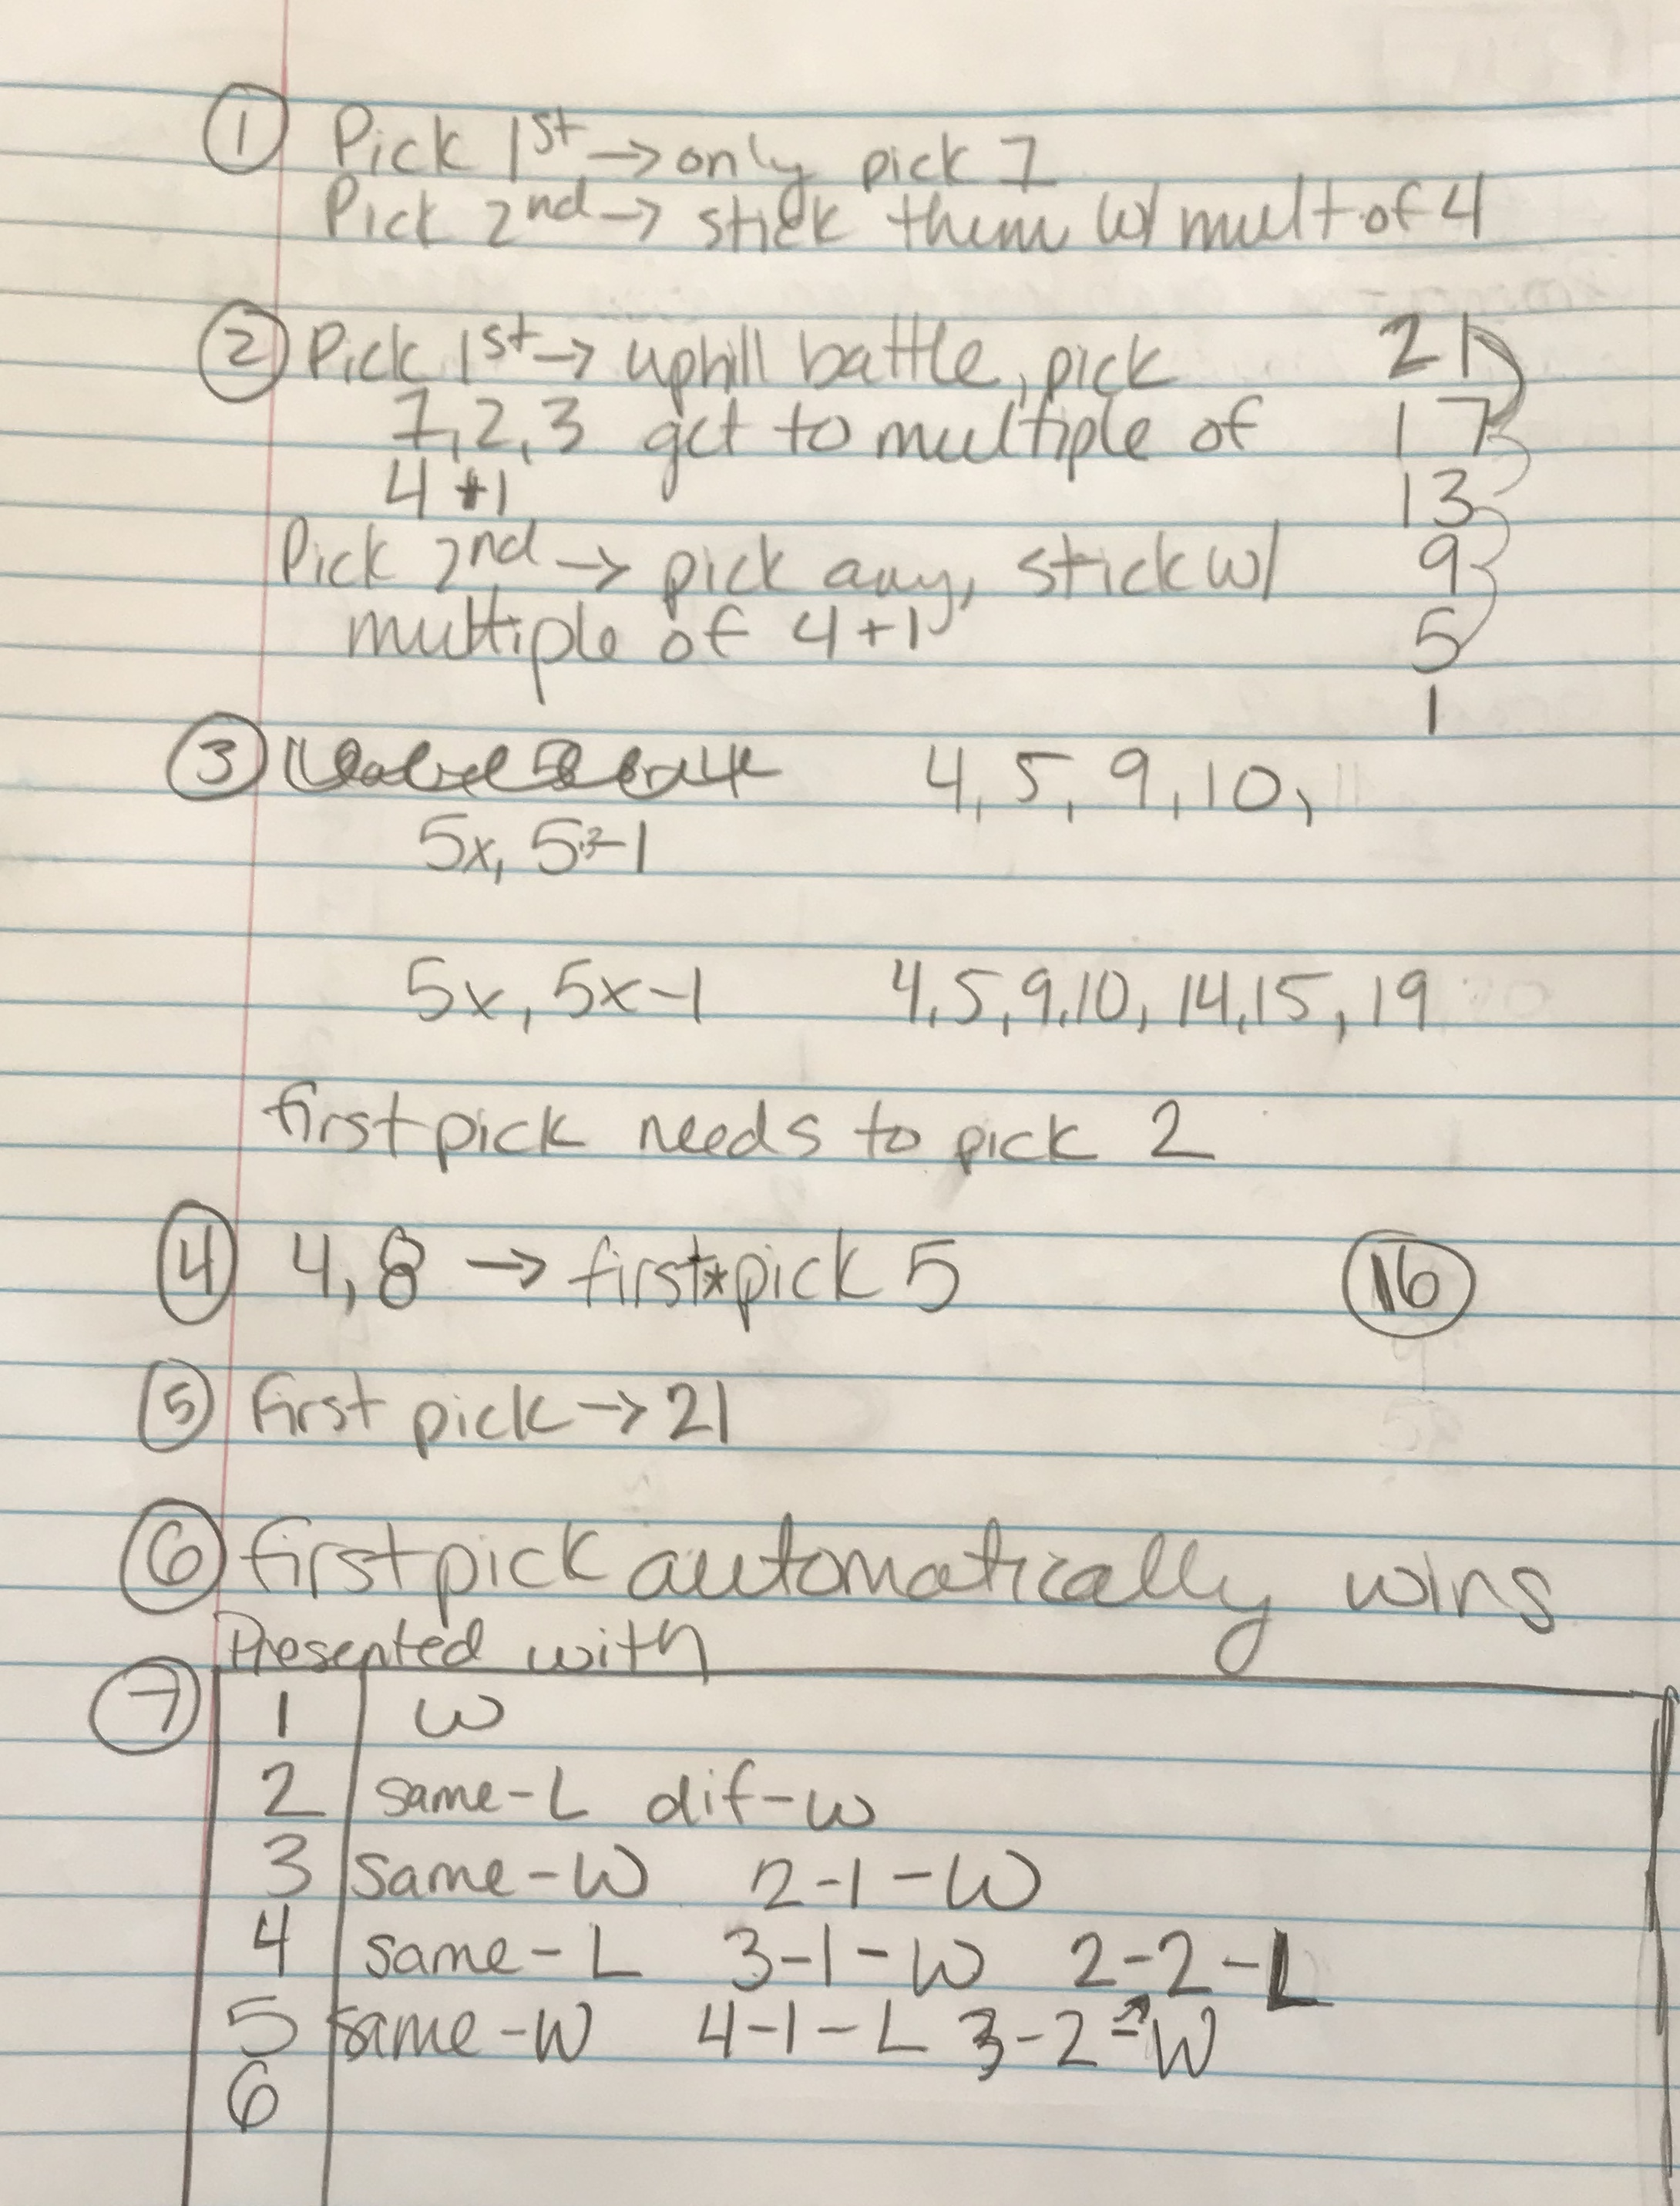 ① Pick 1st → only pick 1
Pick 2nd → stick them w/ mult of 4
② Pick 1st → uphill battle, pick 21
1, 2, 3 get to multiple of 17
4 +1 13
Pick 2nd → pick any, stick w/ 9
multiple of 4+1 5
1
③ 4, 5, 9, 10,
5x, 5 -1
5x, 5x-1 4, 5, 9, 10, 14, 15, 19
first pick needs to pick 2
④ 4, 8 → first*pick 5 16
⑤ First pick → 21
⑥ first pick automatically wins
Presented with
⑦ 1 W
2 same-L dif-W
3 same-W 2-1-W
4 same-L 3-1-W 2-2-L
5 same-W 4-1-L 3-2-W
6